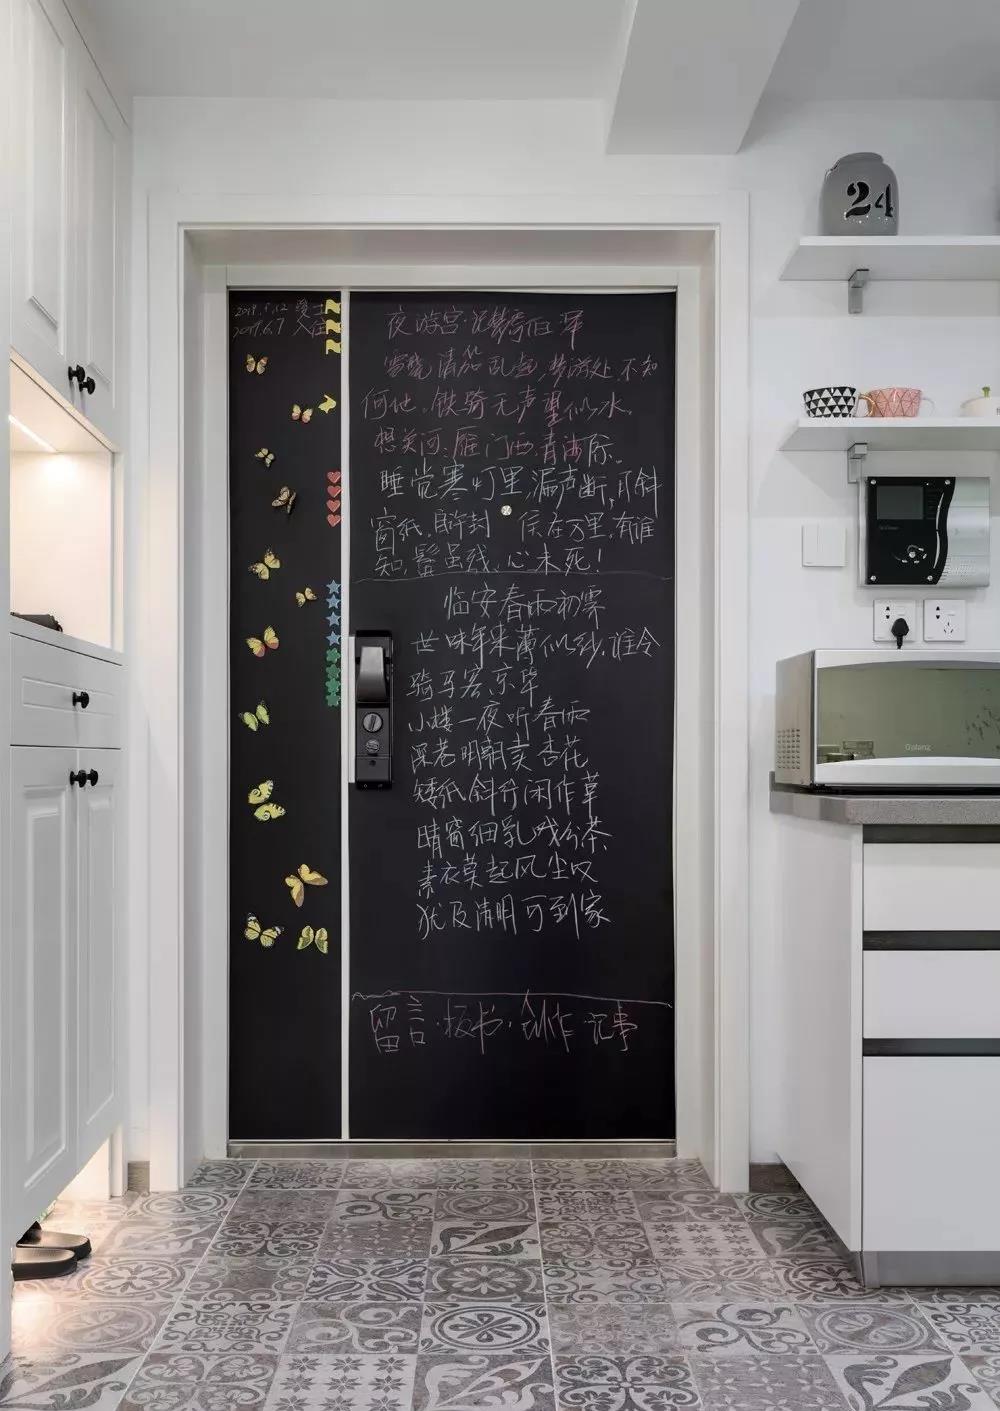 2019.5.12 爱士
2019.6.7 入住
夜游宫·记梦寄伯浑
雪晓清笳乱起，梦游处，不知
何地。铁骑无声望似水。
想关河：雁门西，青海际。
睡觉寒灯里，漏声断，月斜
窗纸。自许封侯在万里。有谁
知，鬓虽残，心未死！
临安春雨初霁
世味年来薄似纱，谁令
骑马客京华
小楼一夜听春雨
深巷明朝卖杏花
矮纸斜行闲作草
晴窗细乳戏分茶
素衣莫起风尘叹
犹及清明可到家
留言·板书·创作·记事
24
Galanz